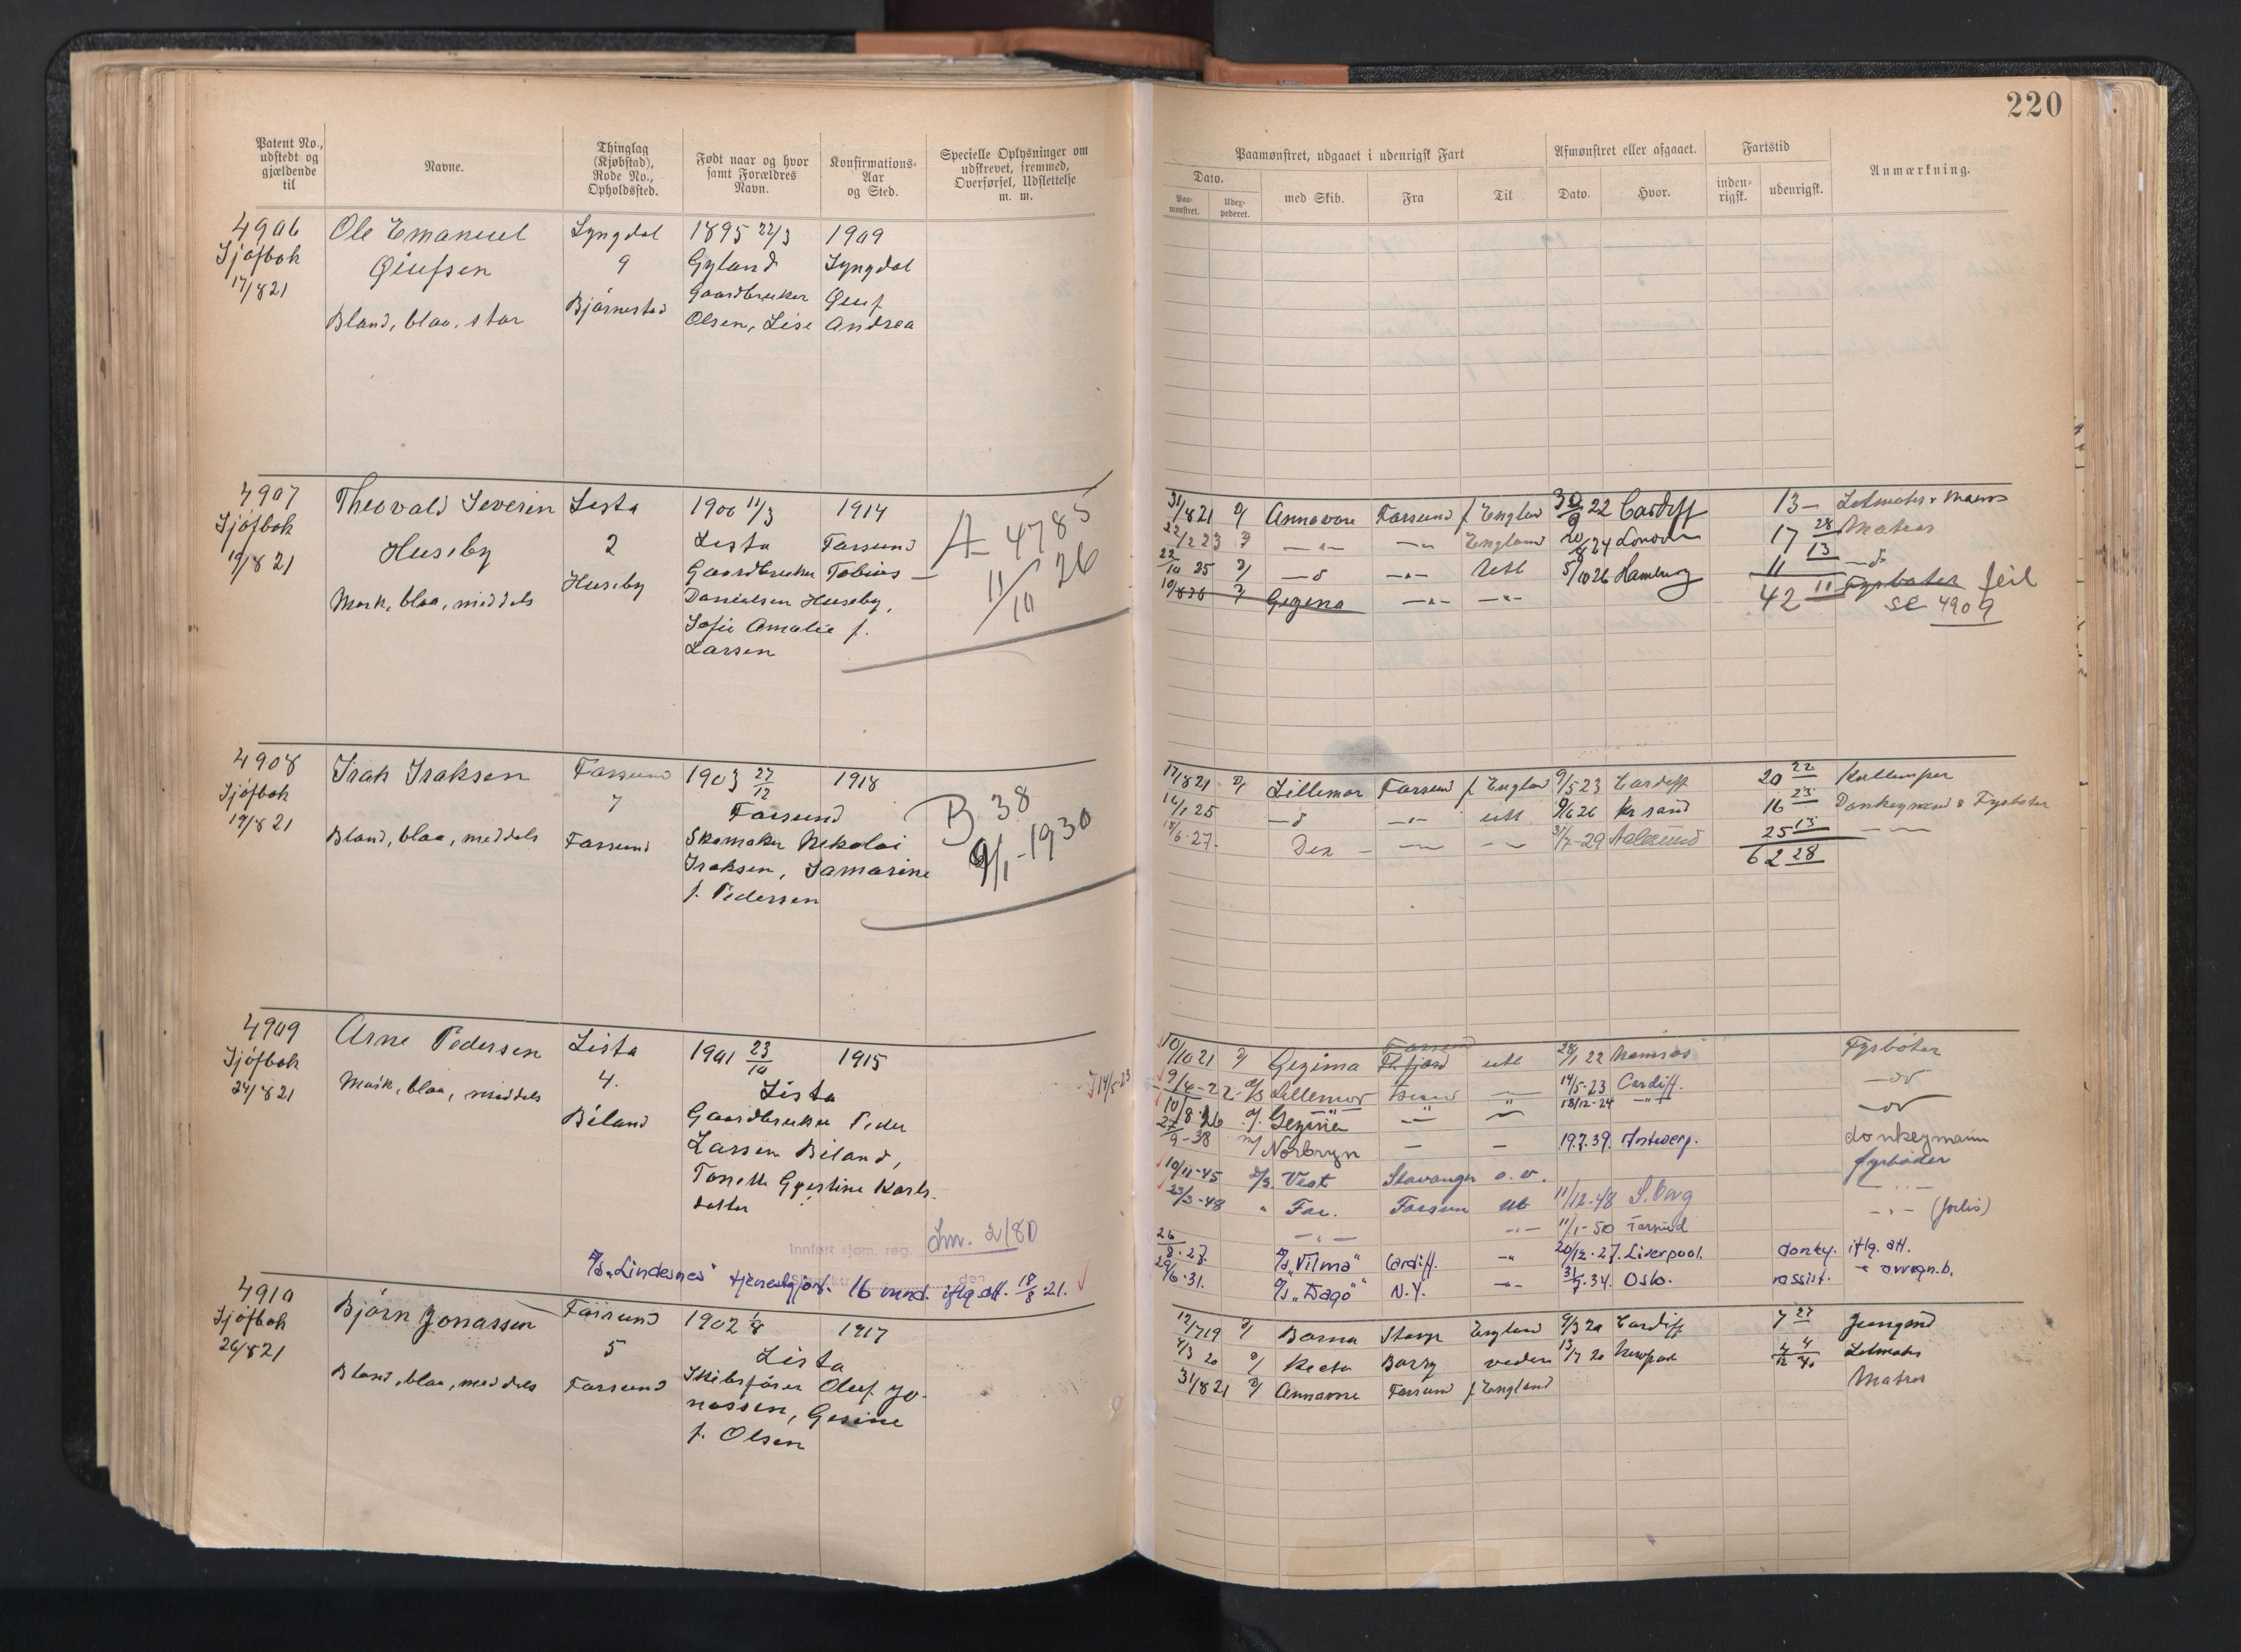 220
Patent No., udstedt og gjældende til
Navne.
Thinglag (Kjøbstad), Rode No., Opholdssted.
Født naar og hvor samt Forældres Navn.
Konfirmations-Aar og Sted.
Specielle Oplysninger om udskrevet, fremmed, Overførsel, Udslettelse m. m.
Paamønstret, udgaaet i udenrigsk Fart
Afmønstret eller afgaaet.
Fartstid
Anmærkning.
Dato.
Paamønstret.
med Skib.
Fra
Til
Dato.
Hvor.
indenrigsk.
udenrigsk.
4906 Ole Emanuel Lyngdal 1895 22/3 1909
Sjøfbok Olufsen 9 Gyland Lyngdal
17/8 21 Bjørnestad Gaardbruker Oluf
Blond, blaa, stor Olsen, Lise Andrea
4907 Theovald Severin Lista 1900 11/3 1914
Sjøfbok Huseby 2 Lista Farsund
19/8 21 Huseby Gaardbruker Tobias
Mørk, blaa, middels Danielsen Huseby,
Sofie Amalie f.
Larsen
A 4785
11/10 26
31/8 21 Annavore Farsund f England 30/9 22 Cardiff 13 –
22/12 23 —"— —"— England 20/8 24 London 17 28 Matros
22/10 25 —d —"— Utl 5/10 26 Hamburg 11 13 —d
10/8 26 Gezina —"— —"— 42 11 Fyrbøter feil
se 4909
4908 Isak Isaksen Farsund 1903 27/12 1918
Sjøfbok 7 Farsund
19/8 21 Blond, blaa, middels Farsund Skomaker Nikolai
Isaksen, Samarine
f. Pedersen
B 38
9/1-1930
17/8 21 Lillemor Farsund f England 9/5 23 Cardiff 20 22 Kullemper
16/1 25 —d —"— utl 9/6 26 Kr sand 16 23 Donkeymand & Fyrbøter
18/6-27. —"— —"— 31/7-29 Aalesund 25 13
62 28
4909 Arne Pedersen Lista 1901 23/10 1915
Sjøfbok 4. Lista
24/8 21 Mørk, blaa, middels Biland Gaardbruker Peder
Larsen Biland,
Karls-
datter
14/5-23
Innført sjøm. reg. Lm. 2180
"Lindesnes" tjenestgjort 16 mnd. iflg att. 18/8-21.
10/10 21 Gezima Farsund utl 28/1 22 Namsos Fyrbøter
9/4-22 Lillemor 14/5-23 Cardiff.
10/8-26 Gezina 18/12-24
27/9-38 Norbryn — — 19.7.39. Antwerp. donkeymann
10/11-45 Vest Stavanger fyrbøder
23/3-48 " Far. Farsun utl 11/12-48 S. borg
11/1-50 Farsund
26/8.27. "Vilma" Cardiff. 20/12-27. Liverpool. donky. iflg. att.
29/6-31. "Dago" N.Y. 31/7.34. Oslo. assist.
4910 Bjørn Jonassen Farsund 1902 1/8 1917
Sjøfbok 5 Lista
26/8 21 Blond, blaa, middels Farsund Skibsfører Oluf Jo-
nassen, Gesine
f. Olsen
12/7 19 England 9/3 20 Cardiff 7 27 Jungmd
Barry 13/7 20 Newport 4 4 Letmatros
31/8 21 Annavore Farsund f England Matros